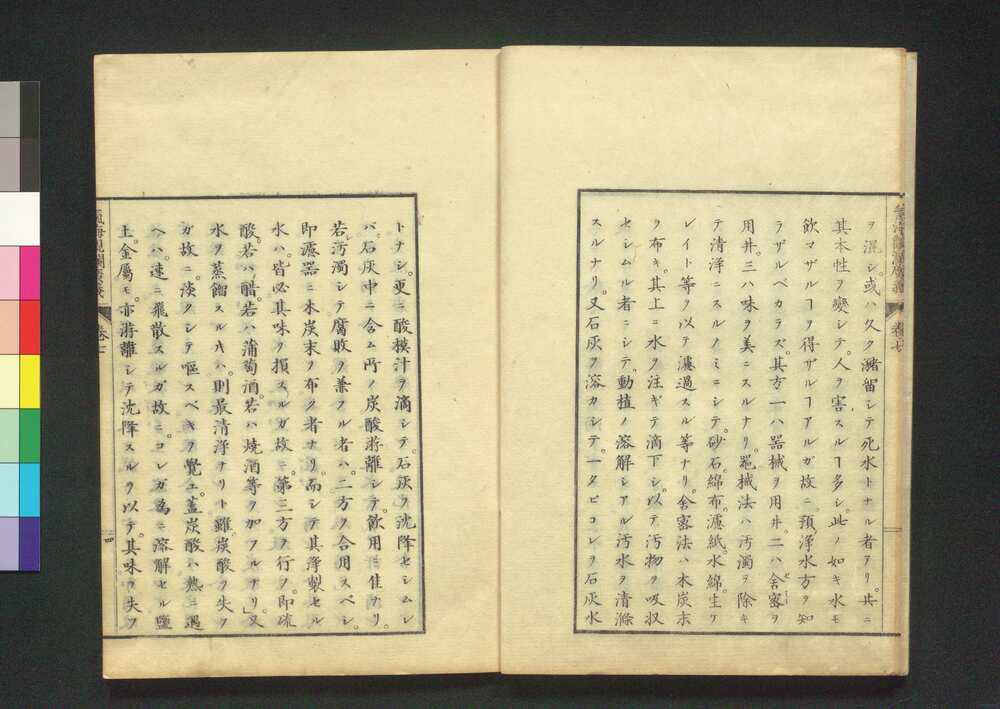 ヲ混シ或ハ久ク瀦留シテ死水トナル者アリ。其ニ
其本性ヲ變シテ。人ヲ害スルヿ多シ。此ノ如キ水モ
飮マザルヿヲ得ザルヿアルガ故ニ。預淨水方ヲ知
ラザルベカラズ。其方一ハ器械ヲ用井。二ハ舍密ヲ
用井。三ハ味ヲ美ニスルナリ。器械法ハ汚濁ヲ除キ
テ清淨ニスルノミニシテ。砂。石。綿布。濾紙。水綿。生ケ
レイト等ヲ以テ濾過スル等ナリ。舍密法ハ木炭末
ヲ布キ。其上ニ水ヲ注ギテ滴下シ。以テ汚物ヲ吸収
セシムル者ニシテ。動植ノ溶解シアル汚水ヲ清滌
スルナリ。又石灰ヲ溶カシテ。一タビコレヲ石灰水
トナシ。更ニ酸模汁ヲ滴シテ。石灰ヲ沈降セシムレ
バ。石灰中ニ含ム所ノ炭酸游離シテ。飮用ニ佳ナリ。
若汚濁シテ腐敗ヲ兼ヌル者ハ。二方ヲ合用スベシ。
即濾器ニ木炭末ヲ布ク者ナリ。而シテ其淨製セル
水ハ。皆必其味ヲ損スルガ故ニ。第三方ヲ行フ。即硫
酸。若ハ醋。若ハ蒲萄酒。若ハ燒酒等ヲ加フルナリ。又
水ヲ蒸餾スル片ハ。則最清淨ナリト雖。炭酸ヲ失フ
ガ故ニ。淡クシテ嘔スベキヲ覺ユ。蓋炭酸ハ熱ニ遇
ヘハ。速ニ飛散スルガ故ニ。コレガ為ニ溶解セル鹽
土。金屬モ。亦游離シテ沈降スルヲ以テ。其味ヲ失フ
氣海觀瀾廣義
卷七